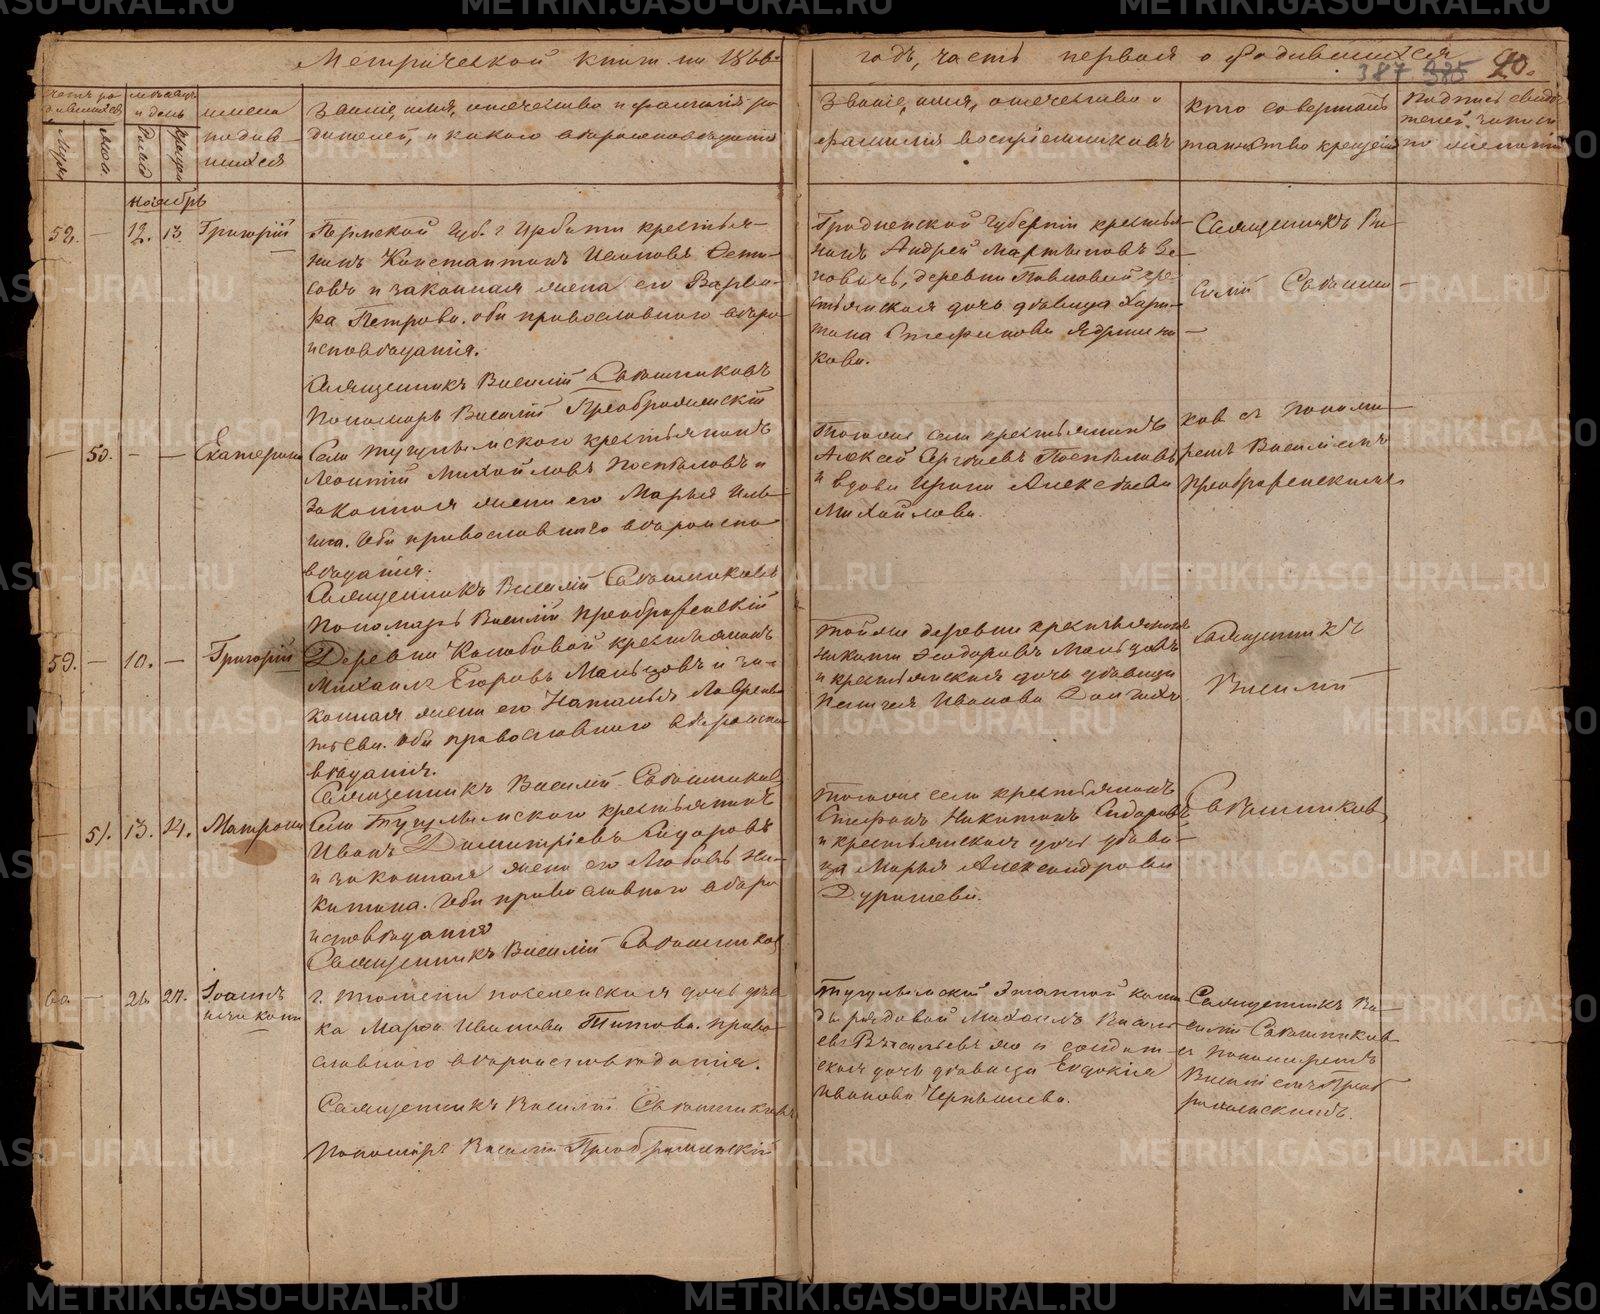 Метрической книги на 1866
годъ, часть первая о родившихся
387 385 20.
счетъ ро
дившихся
мѣсяцъ
и день
имена
родив
шихся
Званіе, имя, отчество и фамилія ро
дителей, и какого вѣроисповѣданія
Званіе, имя, отчество и
фамилія воспріемниковъ
кто совершалъ
таинство крещенія
Подпись свидѣ
телей записи
по желанію
Муж.
Жен.
Рожд.
Крещен.
Ноябрь
58. — 12. 13. Григорій
Пермской Губ. г Ирбити крестья-
нинъ Константинъ Ивановъ
и законная жена его Варва-
ра Петрова. оба православнаго вѣро
исповѣданія.
Священникъ Василій Свѣшниковъ
Пономарь Василій Преображенскій
Гродненской Губерніи крестья-
нинъ Андрей Мартыновъ
деревни Павловой кре-
стьянская дочь дѣвица Хари-
тина Стефанова Ядрышни
кова.
Священникъ Ва-
силій Свѣшни-
— 50. — — Екатерина
Села тугулымского крестьянинъ
Леонтій Михайловъ Поспѣловъ и
законная жена его Марья Иль-
ина. Оба православнаго вѣроиспо-
вѣданія.
Священникъ Василій Свѣшниковъ
Пономарь Василій Преображенскій
Тогоже села крестьянинъ
Алексей Сергѣевъ Поспѣловъ
и вдова Ирина Алексѣева
Михайлова.
ков съ понома-
ремъ Василіемъ
Преображенскимъ
59. — 10. — Григорій
Деревни Колобовой крестьянинъ
Михаилъ Егоровъ Мальцовъ и за-
конная жена его Наталья Лаврен
тьева. оба православнаго вѣроиспо
вѣданія.
Священникъ Василій Свѣшниковъ
Тойже деревни крестьянинъ
Никита Феодоровъ Мальцовъ
и крестьянская дочь дѣвица
Пелагея Иванова Долгихъ
Священникъ
Василій
— 51. 13. 14. Матрона
Села Тугулымского крестьянинъ
Иванъ Димитріевъ Сидоровъ
и законная жена его Любовь Ни-
китина. Оба православнаго вѣро
исповѣданія
Священникъ Василій Свѣшников
Тогоже села крестьянинъ
Стефанъ Никитинъ Сидоровъ
и крестьянская дочь дѣви-
ца Марья Александрова
Свѣшников
60. — 26. 27. Іоаннъ
г. Тюмени поселенская дочь дѣв
ка Марфа Иванова Титова. право-
славнаго вѣроисповѣданія.
Священникъ Василій Свѣшниковъ
Пономарь Василій Преображенскій
Тугулымской Этапной коман
ды рядовой Михаилъ Василь
евъ Васильевъ же и солдат-
ская дочь дѣвица Евдокія
Иванова Чернышева.
Священникъ Ва-
силій Свѣшников
съ пономаремъ
Василіемъ Преоб
раженскимъ.
METRIKI.GASO-URAL.RU